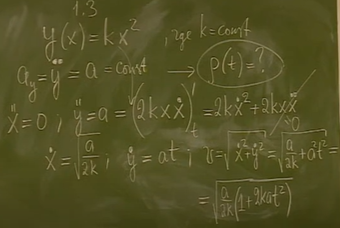 1,3
y(x) = kx² , где k = const
a_y = ÿ = a = const → ρ(t) = ?
ẍ = 0 ; ÿ = a = (2kxẋ)'_t = 2kẋ² + 2kxẍ
0
ẋ = √(a/2k) ; ẏ = at ; v = √(ẋ² + ẏ²) = √(a/2k + a²t²) =
= √(a/2k (1 + 2kat²))